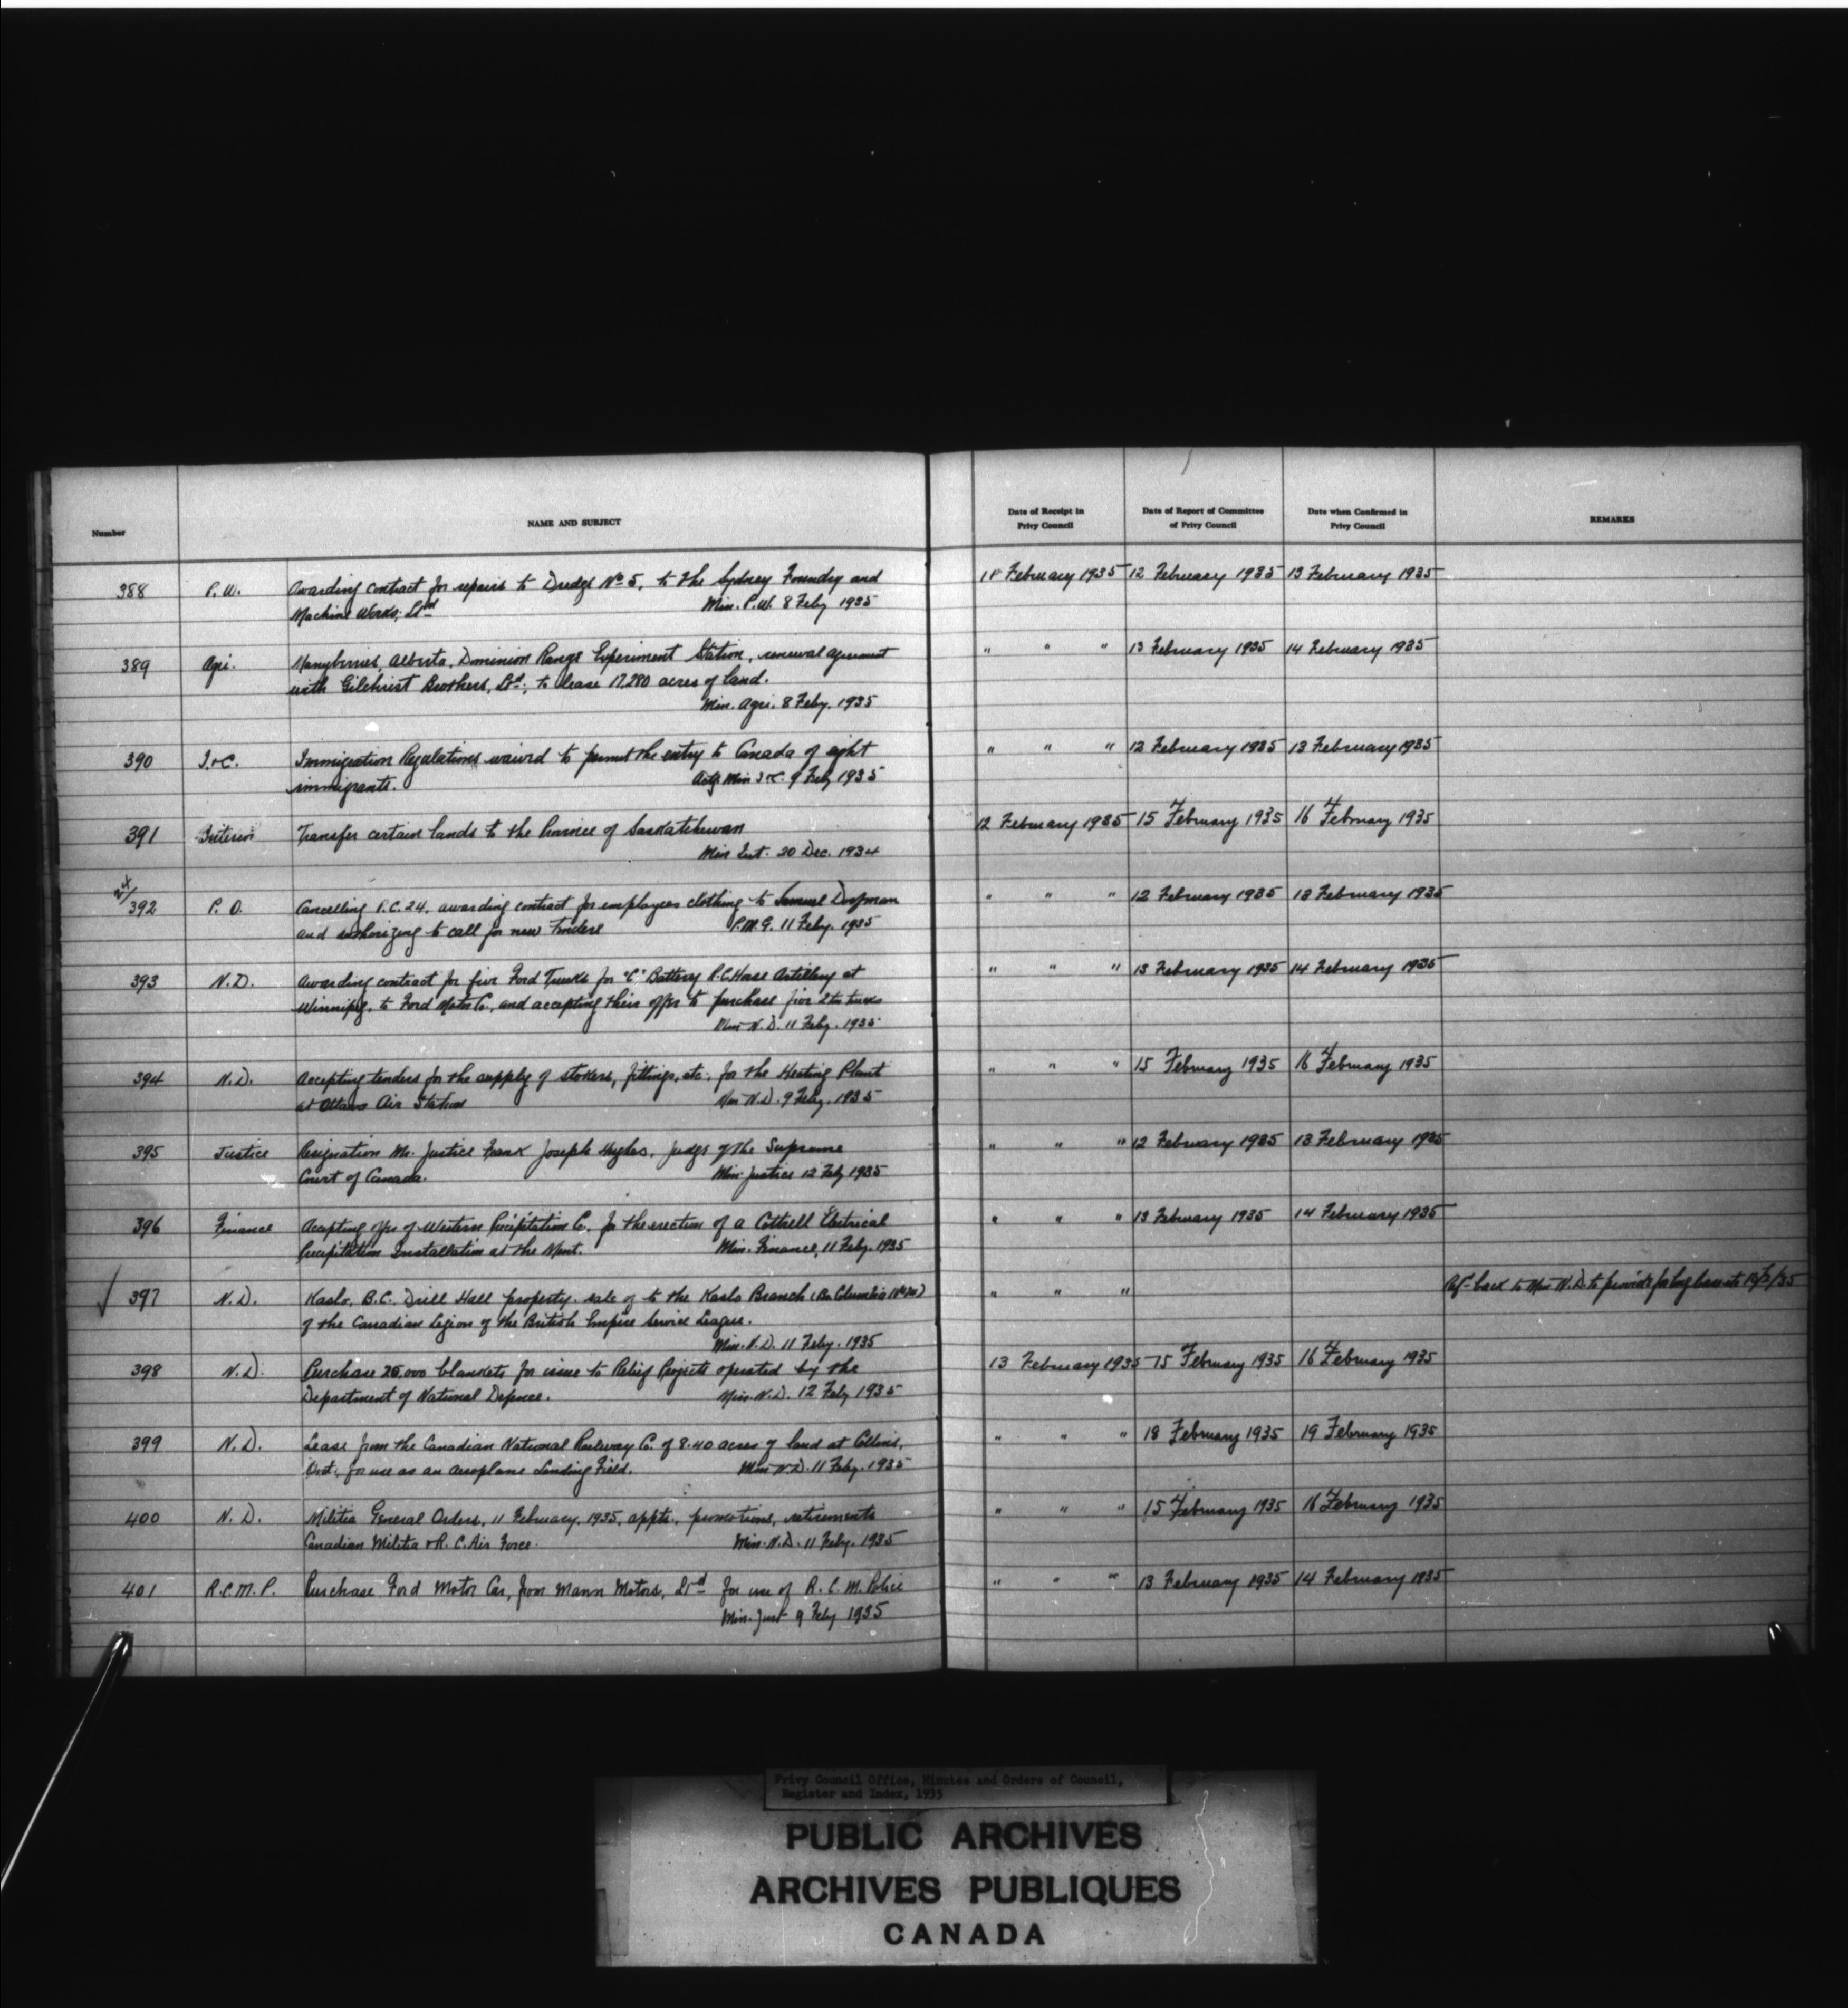 Number
NAME AND SUBJECT
Date of Receipt in Privy Council
Date of Report of Committee of Privy Council
Date when Confirmed in Privy Council
REMARKS
388 P. W. Awarding contract for repairs to Dredge No 5, to the Sydney Foundry and February 1935 12 February 1935 13 February 1935
Machine Works, Ltd Min. P.W. 8 Feby 1935
389 Agri. Manyberries, Alberta, Dominion Range Experiment Station, renewal agreement " " " 13 February 1935 14 February 1935
with Gilchrist Brothers, Ltd., to lease 17,280 acres of land.
Min. Agri. 8 Feby. 1935
390 I.&C. Immigration Regulations waived to permit the entry to Canada of eight " " " 12 February 1935 13 February 1935
immigrants. Actg Min I&C. 9 Feby 1935
391 Interior Transfer certain lands to the Province of Saskatchewan 12 February 1935 15 February 1935 16 February 1935
Min Int. 20 Dec. 1934
24/392 P. O. Cancelling P.C. 24, awarding contract for employees clothing to Samuel Dorfman " " " 12 February 1935 13 February 1935
and authorizing to call for new tenders P.M.G. 11 Feby. 1935
393 N.D. Awarding contract for five Ford Trucks for "C" Battery R.C. Horse Artillery at " " " 13 February 1935 14 February 1935
Winnipeg, to Ford Motor Co., and accepting their offer to purchase five
Min N.D. 11 Feby. 1935
394 N.D. Accepting tenders for the supply of stokers, fittings, etc. for the Heating Plant " " " 15 February 1935 16 February 1935
at Ottawa Air Station Min N.D. 9 Feby. 1935
395 Justice Resignation Mr. Justice Frank Joseph Hughes, Judge of the Supreme " " " 12 February 1935 13 February 1935
Court of Canada. Min Justice 12 Feby 1935
396 Finance Accepting offer of Western Precipitation Co. for the erection of a Cottrell Electrical " " " 13 February 1935 14 February 1935
Precipitation Installation at the Mint. Min. Finance, 11 Feby. 1935
397 N.D. Kaslo, B.C. Drill Hall property. sale of to the Kaslo Branch (Br. Columbia " " " back to Min N.D. to provide for
of the Canadian Legion of the British Empire Service League.
Min. N.D. 11 Feby. 1935
398 N.D. Purchase 25,000 blankets for issue to Relief Projects operated by the 13 February 1935 15 February 1935 16 February 1935
Department of National Defence. Min. N.D. 12 Feby 1935
399 N.D. Lease from the Canadian National Railway Co. of 8.40 acres of land at Collins, " " " 18 February 1935 19 February 1935
Ont., for use as an Aeroplane Landing Field. Min N.D. 11 Feby. 1935
400 N.D. Militia General Orders, 11 February, 1935, appts., promotions, retirements " " " 15 February 1935 16 February 1935
Canadian Militia & R. C. Air Force. Min. N.D. 11 Feby. 1935
401 R.C.M.P. Purchase Ford Motor Car, from Mann Motors, Ltd for use of R. C. M. Police " " " 13 February 1935 14 February 1935
Min. Just 9 Feby 1935
Privy Council Office, Minutes and Orders of Council,
Register and Index, 1935
PUBLIC ARCHIVES
ARCHIVES PUBLIQUES
CANADA